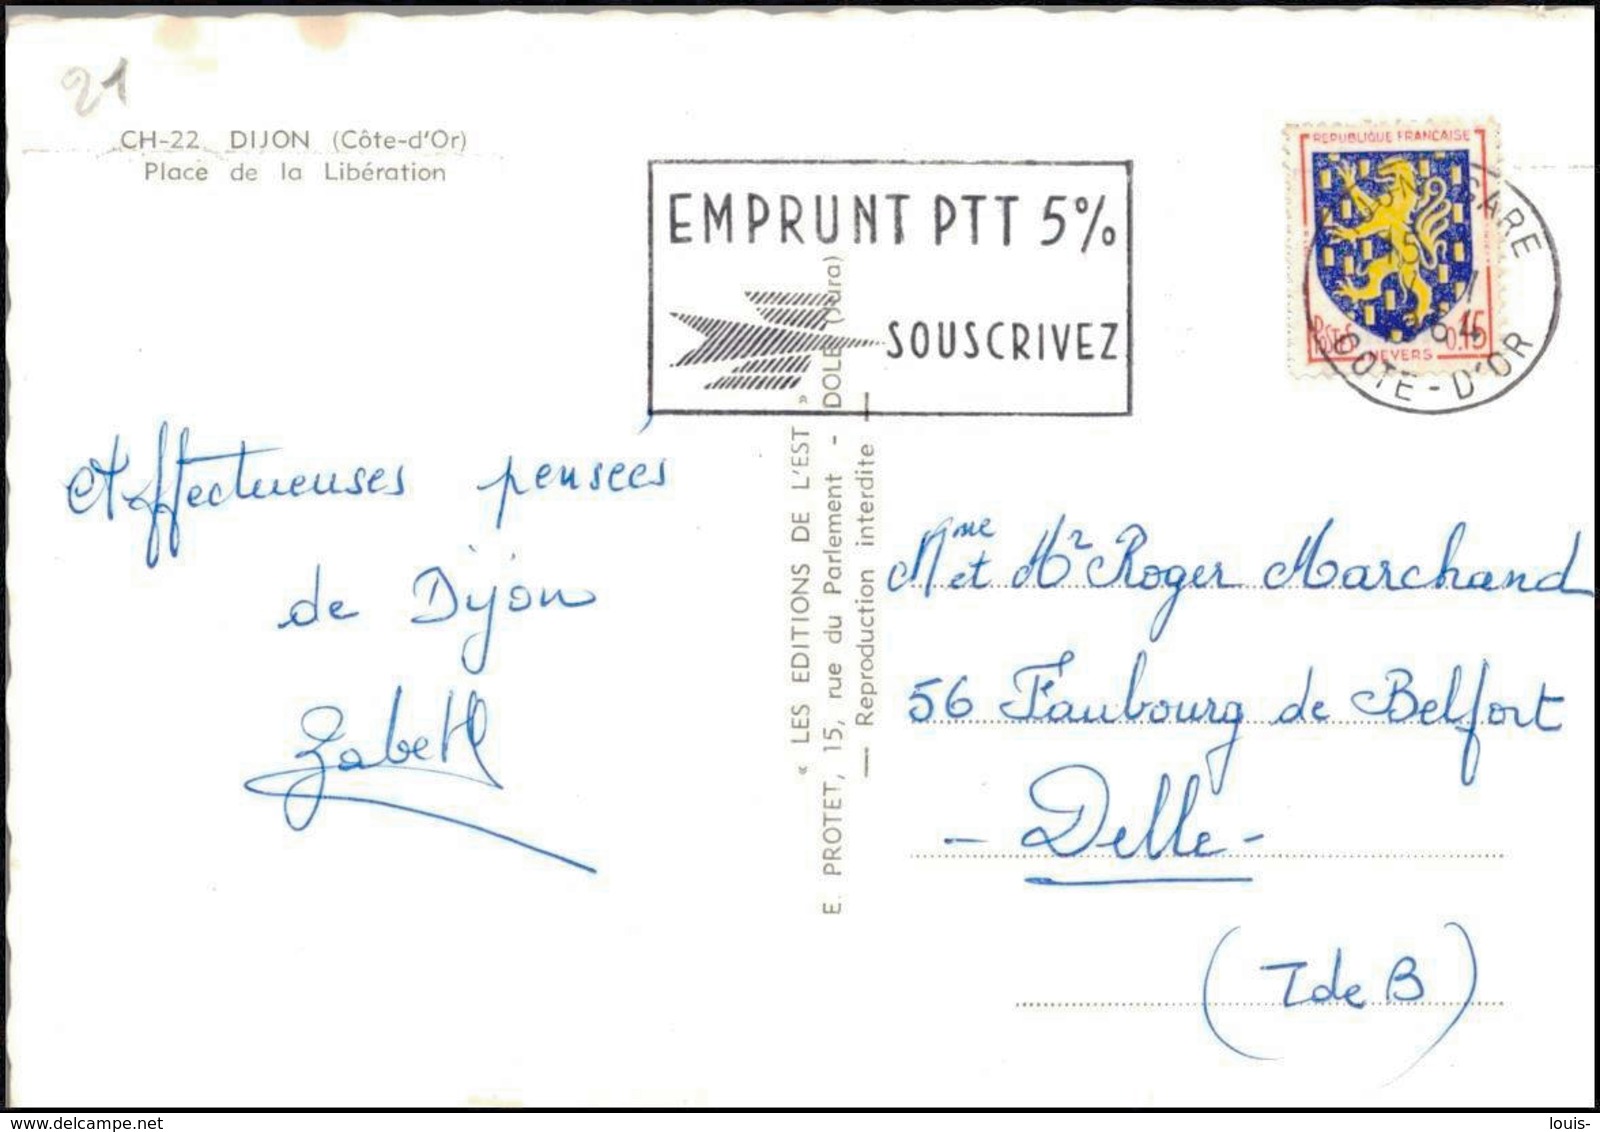 21
CH-22 DIJON (Côte-d'Or)
Place de la Libération
EMPRUNT PTT 5%
SOUSCRIVEZ
REPUBLIQUE FRANÇAISE
POSTES 0.15
NEVERS
GARE
15
1964
COTE-D'OR
Affectueuses pensées
de Dijon
Zabeth
« LES EDITIONS DE L'EST »
E. PROTET, 15, rue du Parlement - DOLE (Jura)
— Reproduction interdite —
Mme et Mr Roger Marchand
56 Faubourg de Belfort
- Delle -
(T de B)
www.delcampe.net
louis-